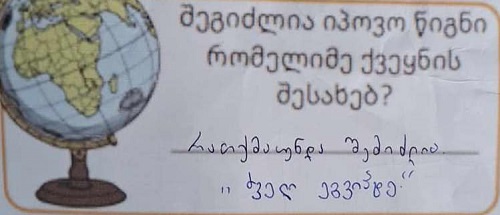 შეგიძლია იპოვო წიგნი
რომელიმე ქვეყნის
შესახებ?
რათქმაუნდა შემიძლია.
„ ძველ ეგვიპტე."